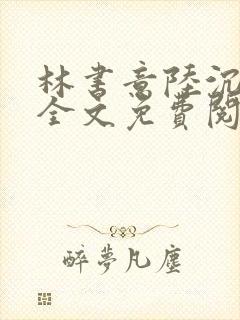 林書意陸沉
全文免費閱
醉夢凡塵